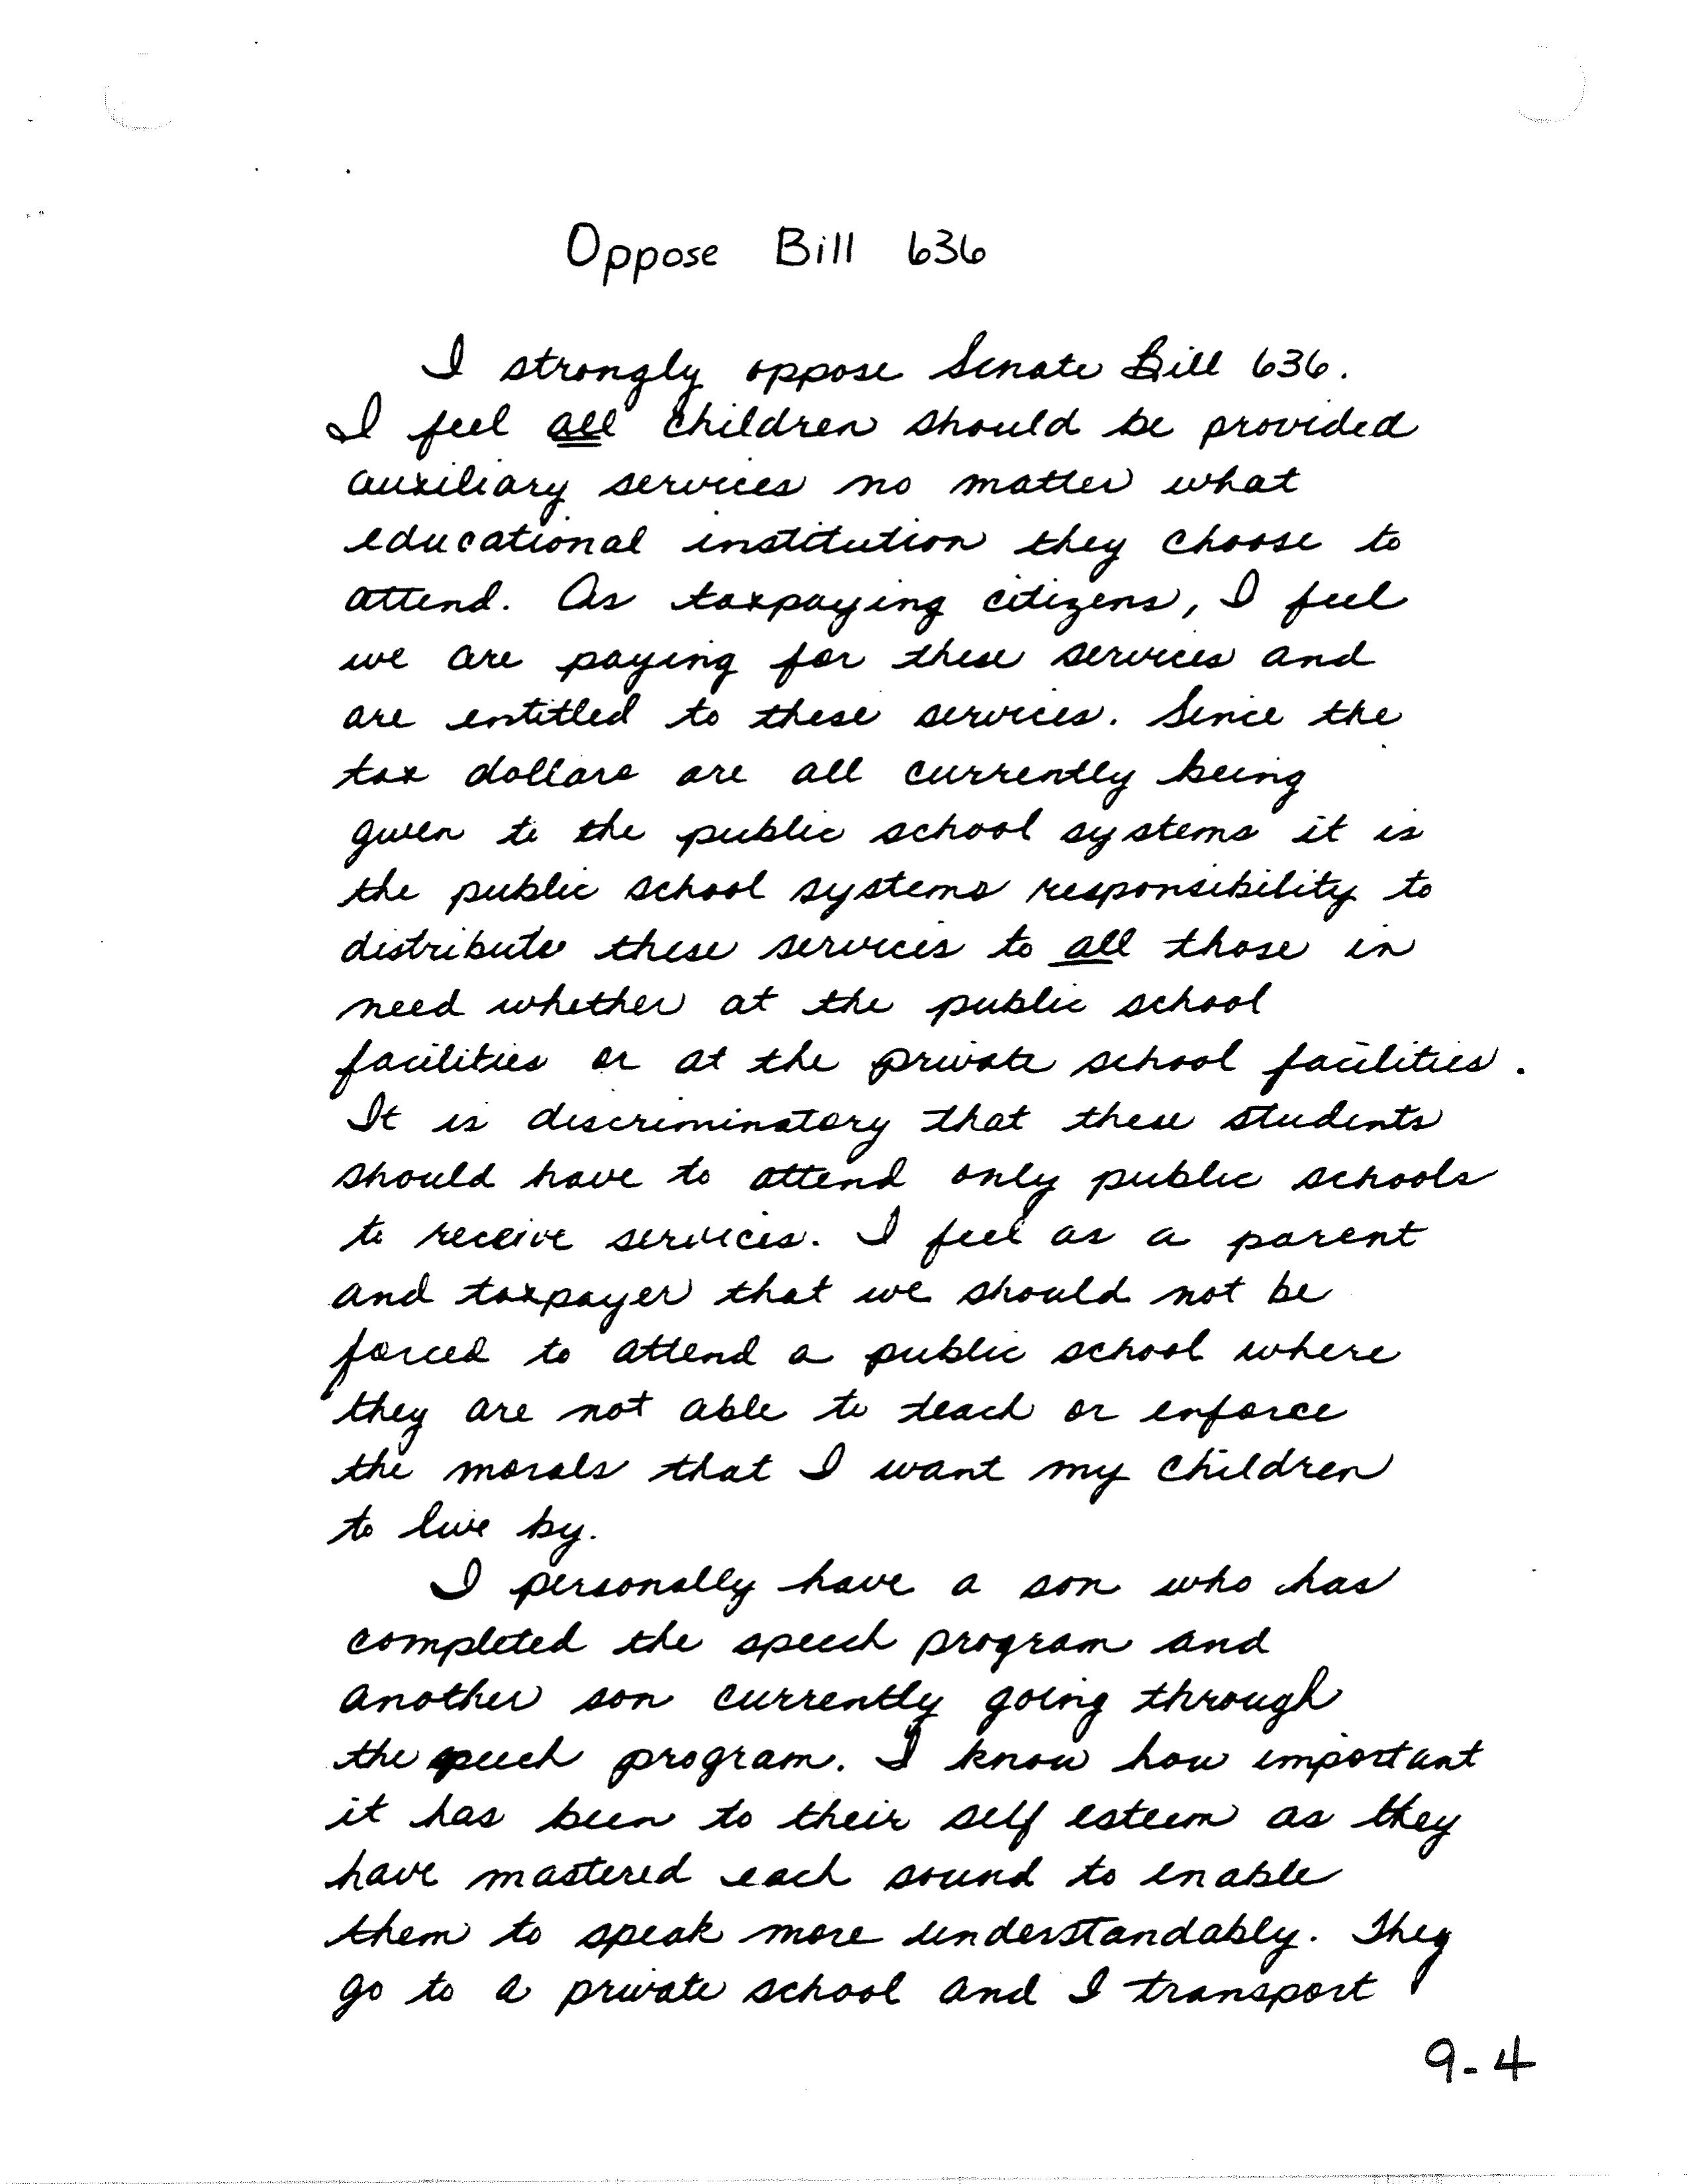 Oppose Bill 636
I strongly oppose Senate Bill 636.
I feel all children should be provided
auxiliary services no matter what
educational institution they choose to
attend. As taxpaying citizens, I feel
we are paying for these services and
are entitled to these services. Since the
tax dollars are all currently being
given to the public school systems it is
the public school systems responsibility to
distribute these services to all those in
need whether at the public school
facilities or at the private school facilities.
It is discriminatory that these students
should have to attend only public schools
to receive services. I feel as a parent
and taxpayer that we should not be
forced to attend a public school where
they are not able to teach or enforce
the morals that I want my children
to live by.
I personally have a son who has
completed the speech program and
another son currently going through
the speech program. I know how important
it has been to their self esteem as they
have mastered each sound to enable
them to speak more understandably. They
go to a private school and I transport
9-4